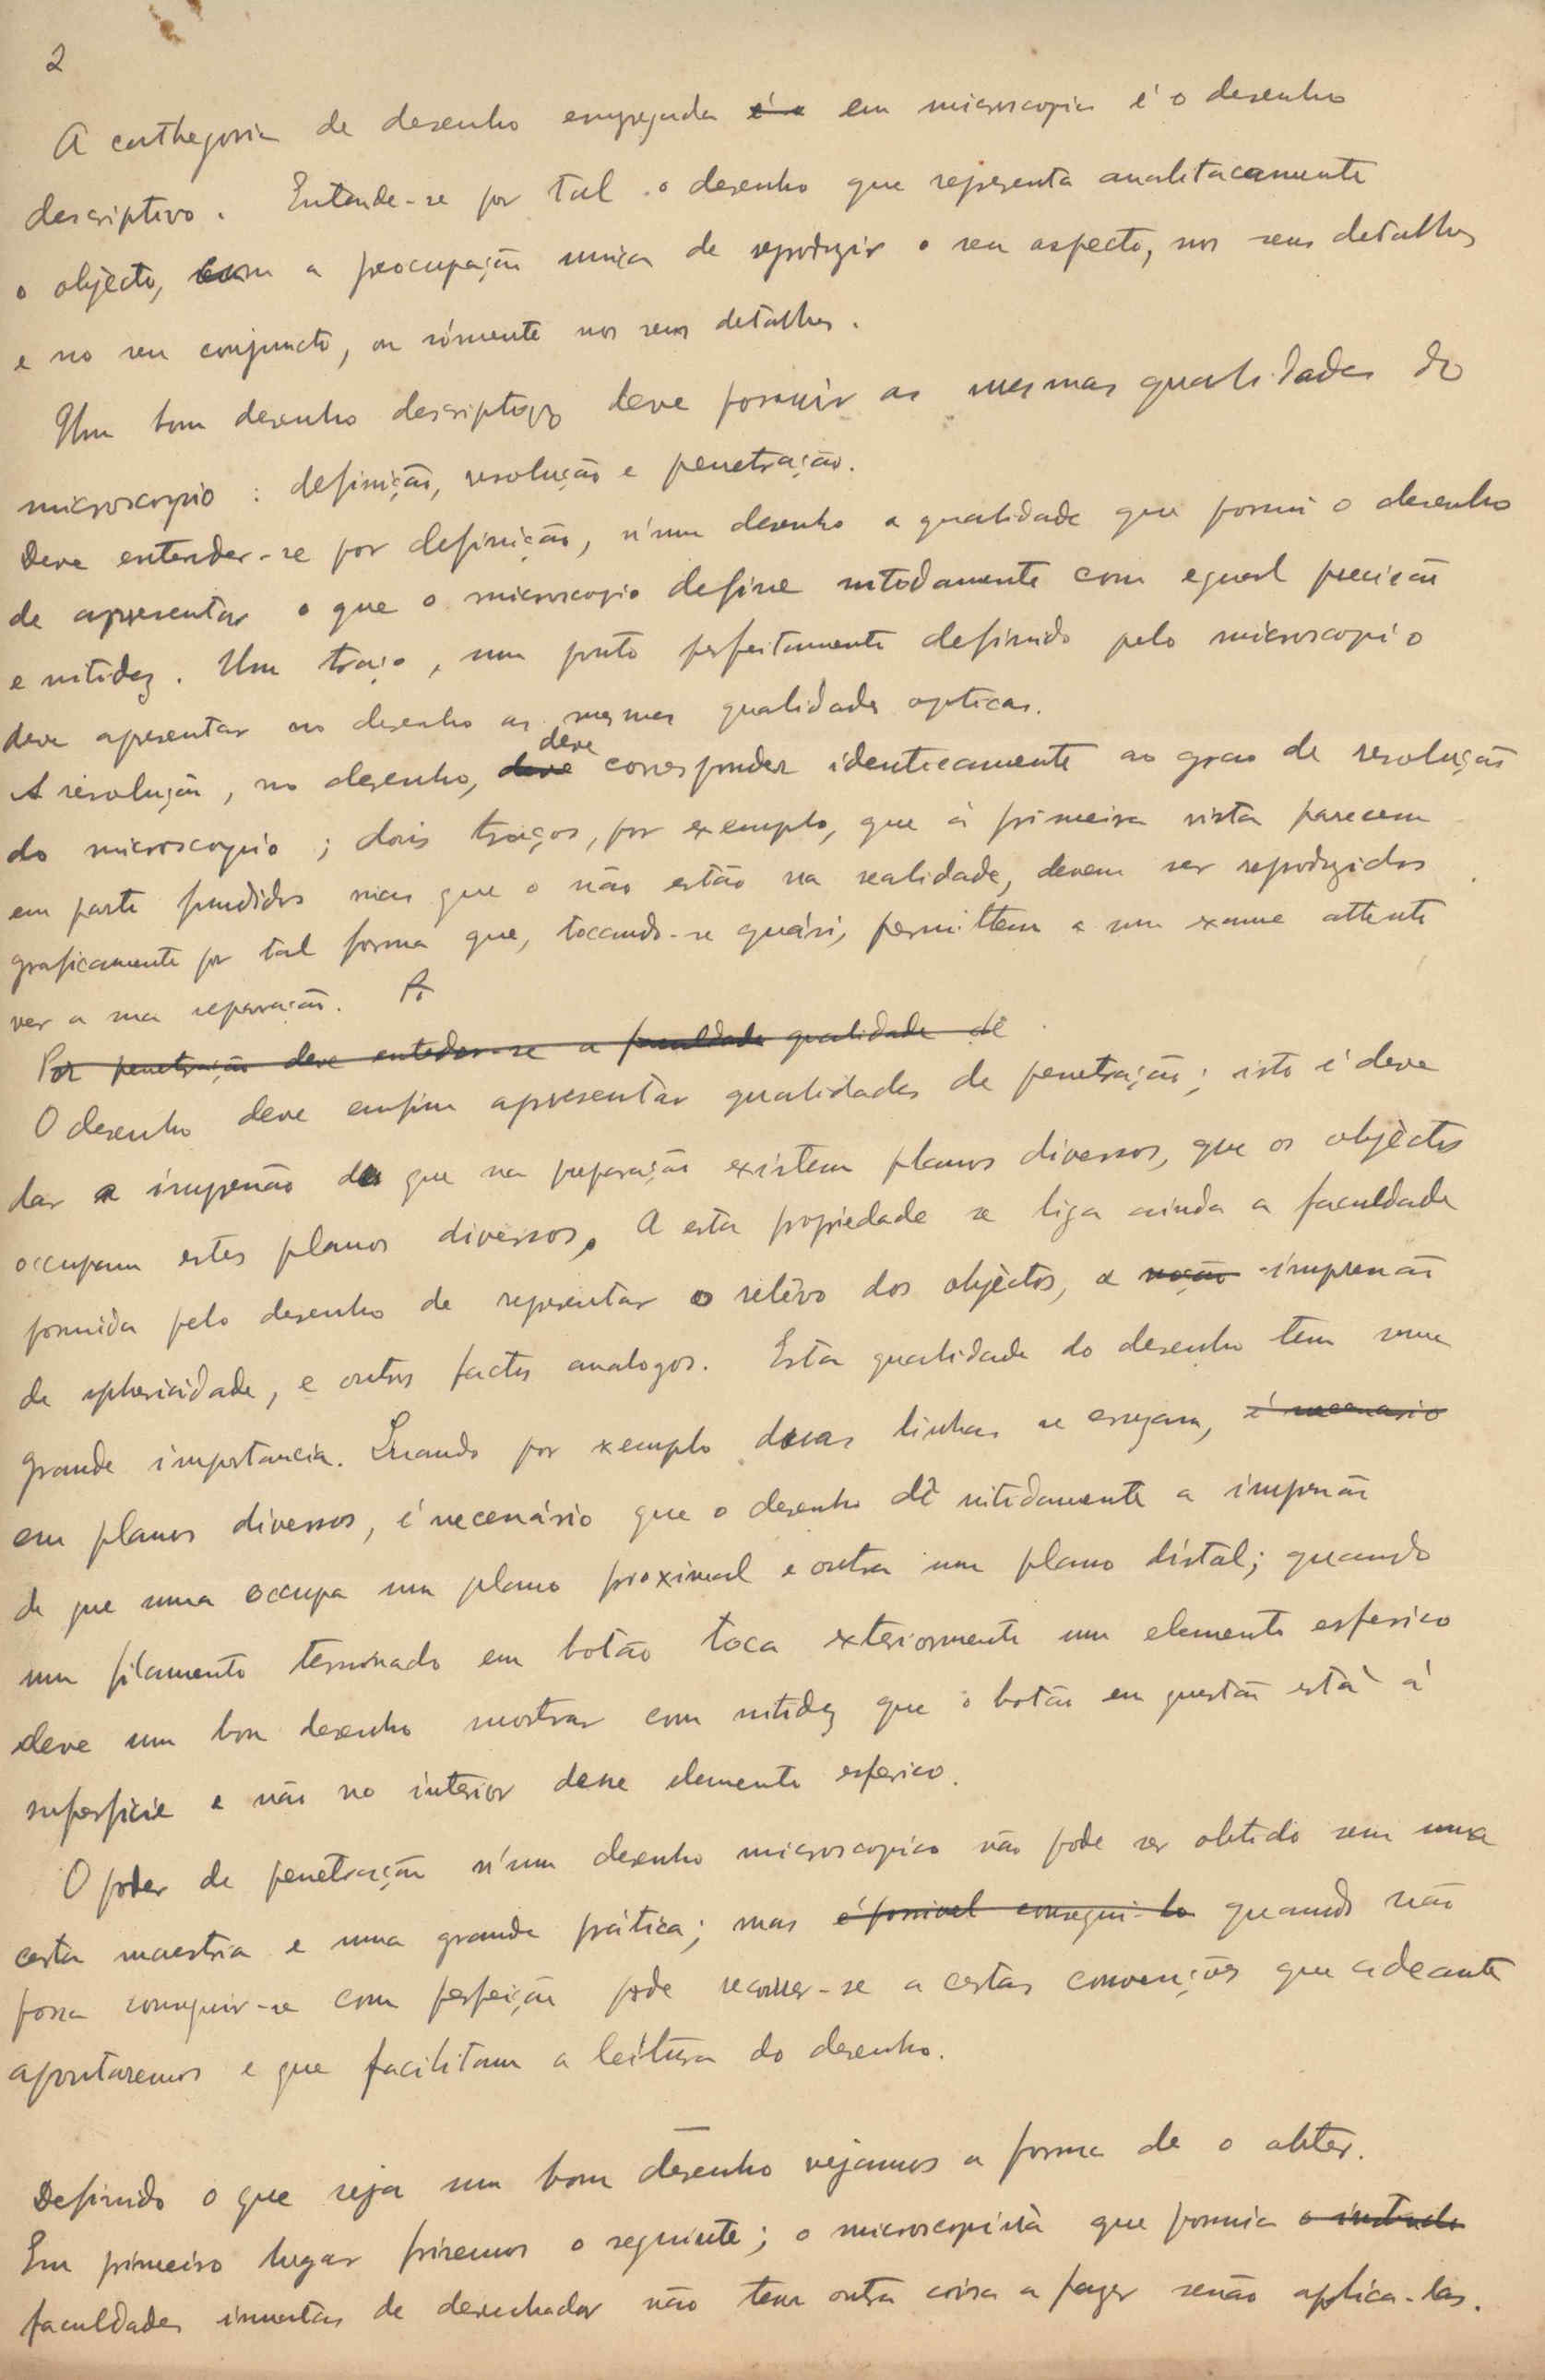 2
A cathegoria de desenho empregada é o em microscopia é o desenho
descriptivo. Entende-se por tal o desenho que representa analitacamente
o objècto, com a preocupação unica de reproduzir o seu aspecto, nos seus detalhes
e no seu conjuncto, ou sómente nos seus detalhes.
Um bom desenho descriptivo deve possuir as mesmas qualidades do
microscopio : definição, resolução e penetração.
Deve entender-se por definição, n'um desenho a qualidade que possui o desenho
de apresentar o que o microscopio define nitidamente com egual precisão
e nitidez. Um traço, um ponto perfeitamente definido pelo microscopio
deve apresentar no desenho as mesmas qualidades opticas.
deve
A resolução, no desenho, deve corresponder identicamente ao grao de resolução
do microscopio ; dois traços, por exemplo, que á primeira vista parecem
em parte fundidos mas que o não estão na realidade, devem ser reproduzidos
graficamente por tal forma que, tocando-se quási, permittem a um exame attento
ver a sua separação.
Por penetração deve entender-se a faculdade qualidade de
O desenho deve emfim apresentar qualidades de penetração; isto é deve
dar a impressão de que na preparação existem planos diversos, que os objèctos
occupam estes planos diversos. A esta propriedade se liga ainda a faculdade
possuida pelo desenho de representar o relêvo dos objèctos, a noção impressão
de sphericidade, e outros factos analogos. Esta qualidade do desenho tem uma
grande importancia. Quando por exemplo duas linhas se cruzam, é necessario
em planos diversos, é necessário que o desenho dê nitidamente a impressão
de que uma occupa um plano proximal e outra um plano distal; quando
um filamento terminado em botão toca exteriormente um elemento esferico
deve um bom desenho mostrar com nitidez que o botão em questão está á
superficie e não no interior desse elemento esferico.
O poder de penetração n'um desenho microscopico não pode ser obtido sem uma
certa maestria e uma grande prática; mas é possivel consegui-lo quando não
possa conseguir-se com perfeição pode recorrer-se a certas convenções que adeante
apontaremos e que facilitam a leitura do desenho.
Definido o que seja um bom desenho vejamos a forma de o obter.
Em primeiro lugar frisemos o seguinte; o microscopista que possuia o
faculdades innatas de desenhador não tem outra coisa a fazer senão aplica-las.